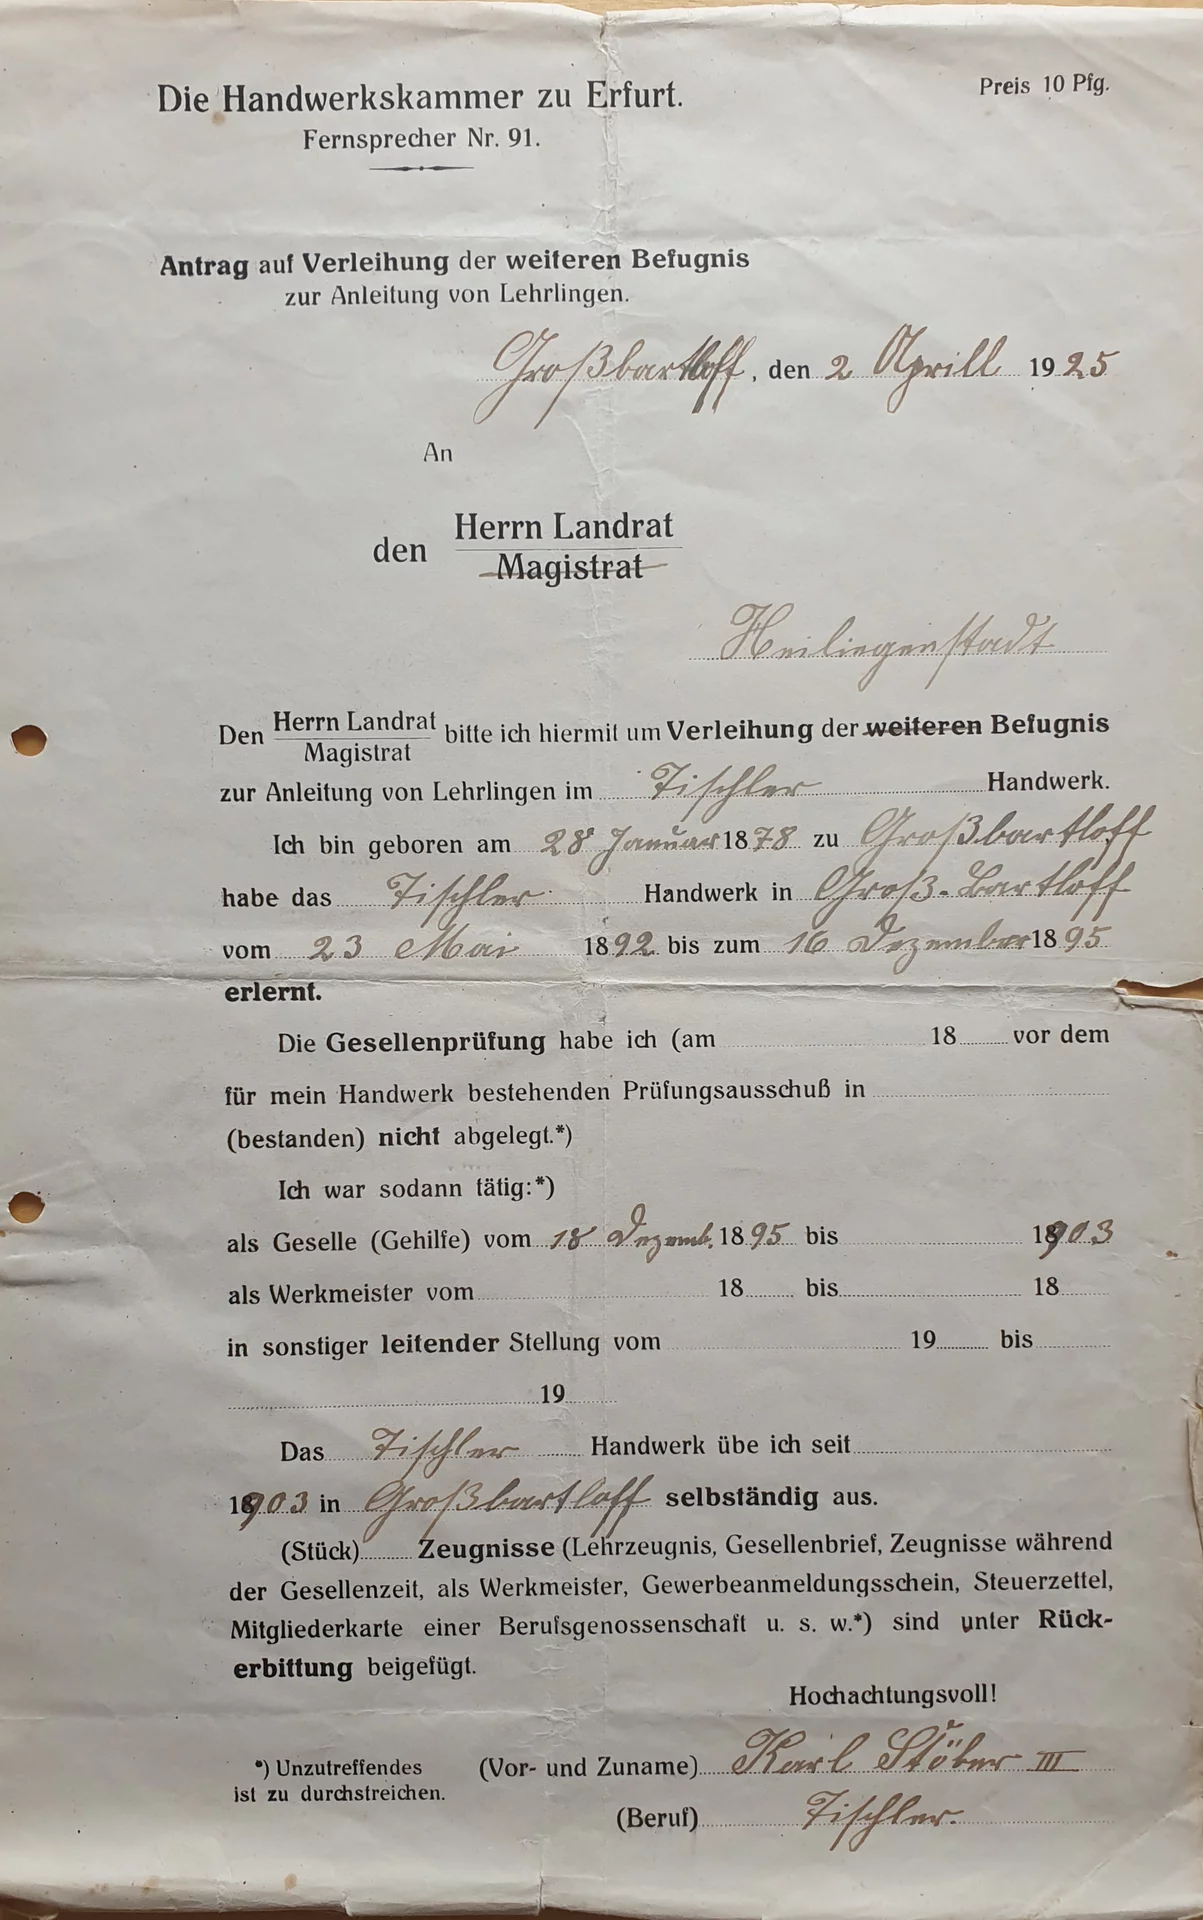 Die Handwerkskammer zu Erfurt.
Preis 10 Pfg.
Fernsprecher Nr. 91.
Antrag auf Verleihung der weiteren Befugnis
zur Anleitung von Lehrlingen.
Großbartloff, den 2 Aprill 1925
An
den Herrn Landrat
Magistrat
Heiliegenstadt
Den Herrn Landrat bitte ich hiermit um Verleihung der weiteren Befugnis
Magistrat
zur Anleitung von Lehrlingen im Tischler Handwerk.
Ich bin geboren am 28 Januar 1878 zu Großbartloff
habe das Tischler Handwerk in Groß-Bartloff
vom 23 Mai 1892 bis zum 16 Dezember 1895
erlernt.
Die Gesellenprüfung habe ich (am 18 vor dem
für mein Handwerk bestehenden Prüfungsausschuß in
(bestanden) nicht abgelegt.*)
Ich war sodann tätig:*)
als Geselle (Gehilfe) vom 18 Dezemb. 1895 bis 1903
als Werkmeister vom 18 bis 18
in sonstiger leitender Stellung vom 19 bis
19
Das Tischler Handwerk übe ich seit
1903 in Großbartloff selbständig aus.
(Stück) Zeugnisse (Lehrzeugnis, Gesellenbrief, Zeugnisse während
der Gesellenzeit, als Werkmeister, Gewerbeanmeldungsschein, Steuerzettel,
Mitgliederkarte einer Berufsgenossenschaft u. s. w.*) sind unter Rück-
erbittung beigefügt.
Hochachtungsvoll!
*) Unzutreffendes
ist zu durchstreichen.
(Vor- und Zuname) Karl Stöber III
(Beruf) Tischler.